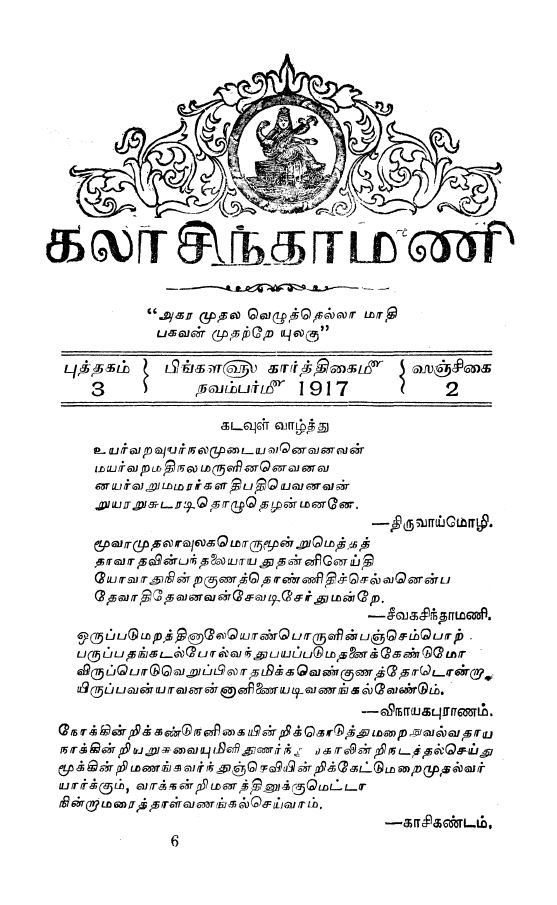 கலாசிந்தாமணி
“அகர முதல வெழுத்தெல்லா மாதி
பகவன் முதற்றே யுலகு”
புத்தகம் 3
பிங்கள௵ கார்த்திகைமீ௴
நவம்பர்மீ௴ 1917
ஸஞ்சிகை 2
கடவுள் வாழ்த்து
உயர்வறவுயர்நலமுடையவனெவனவன்
மயர்வறமதிநலமருளினனெவனவ
னயர்வறுமமரர்களதிபதியெவனவன்
றுயரறுசுடரடிதொழுதெழுன்மனனே.
—திருவாய்மோழி.
மூவாமுதலாவுலகமொருமூன்றுமெத்தத்
தாவாதவின்பந்தலையாயதுதன்னினேய்தி
யோவாதுநின்றகுணத்தொண்ணிதிச்செல்வனென்ப
தேவாதிதேவனவன்சேவடிசேர்துமன்றே.
—சீவகசிந்தாமணி.
ஒருப்படுமறத்தினாலேயொண்பொருளின்பஞ்செம்பொற்
பருப்பதங்கடல்போல்வந்துபயப்படுமதனைக்கேண்டுமோ
விருப்பொடுவெறுப்பிலாதமிக்கவெண்குணத்தோடொன்றா
யிருப்பவன்யாவனன்னானிணையடிவணங்கல்வேண்டும்.
—விநாயகபுராணம்.
நோக்கின்றிக்கண்டுநனிகையின்றிக்கொடுத்துமறைநுவல்வதாய
நாக்கின்றியறுசுவையுமினிதுணர்ந்து காலின்றிநடத்தல்செய்து
மூக்கின்றிமணங்கவர்ந்துஞ்செவியின்றிக்கேட்டுமறைமுதல்வர்
யார்க்கும், வாக்கன்றிமனத்தினுக்குமெட்டா
நின்றாமரைத்தாள்வணங்கல்செய்வாம்.
—காசிகண்டம்.
6